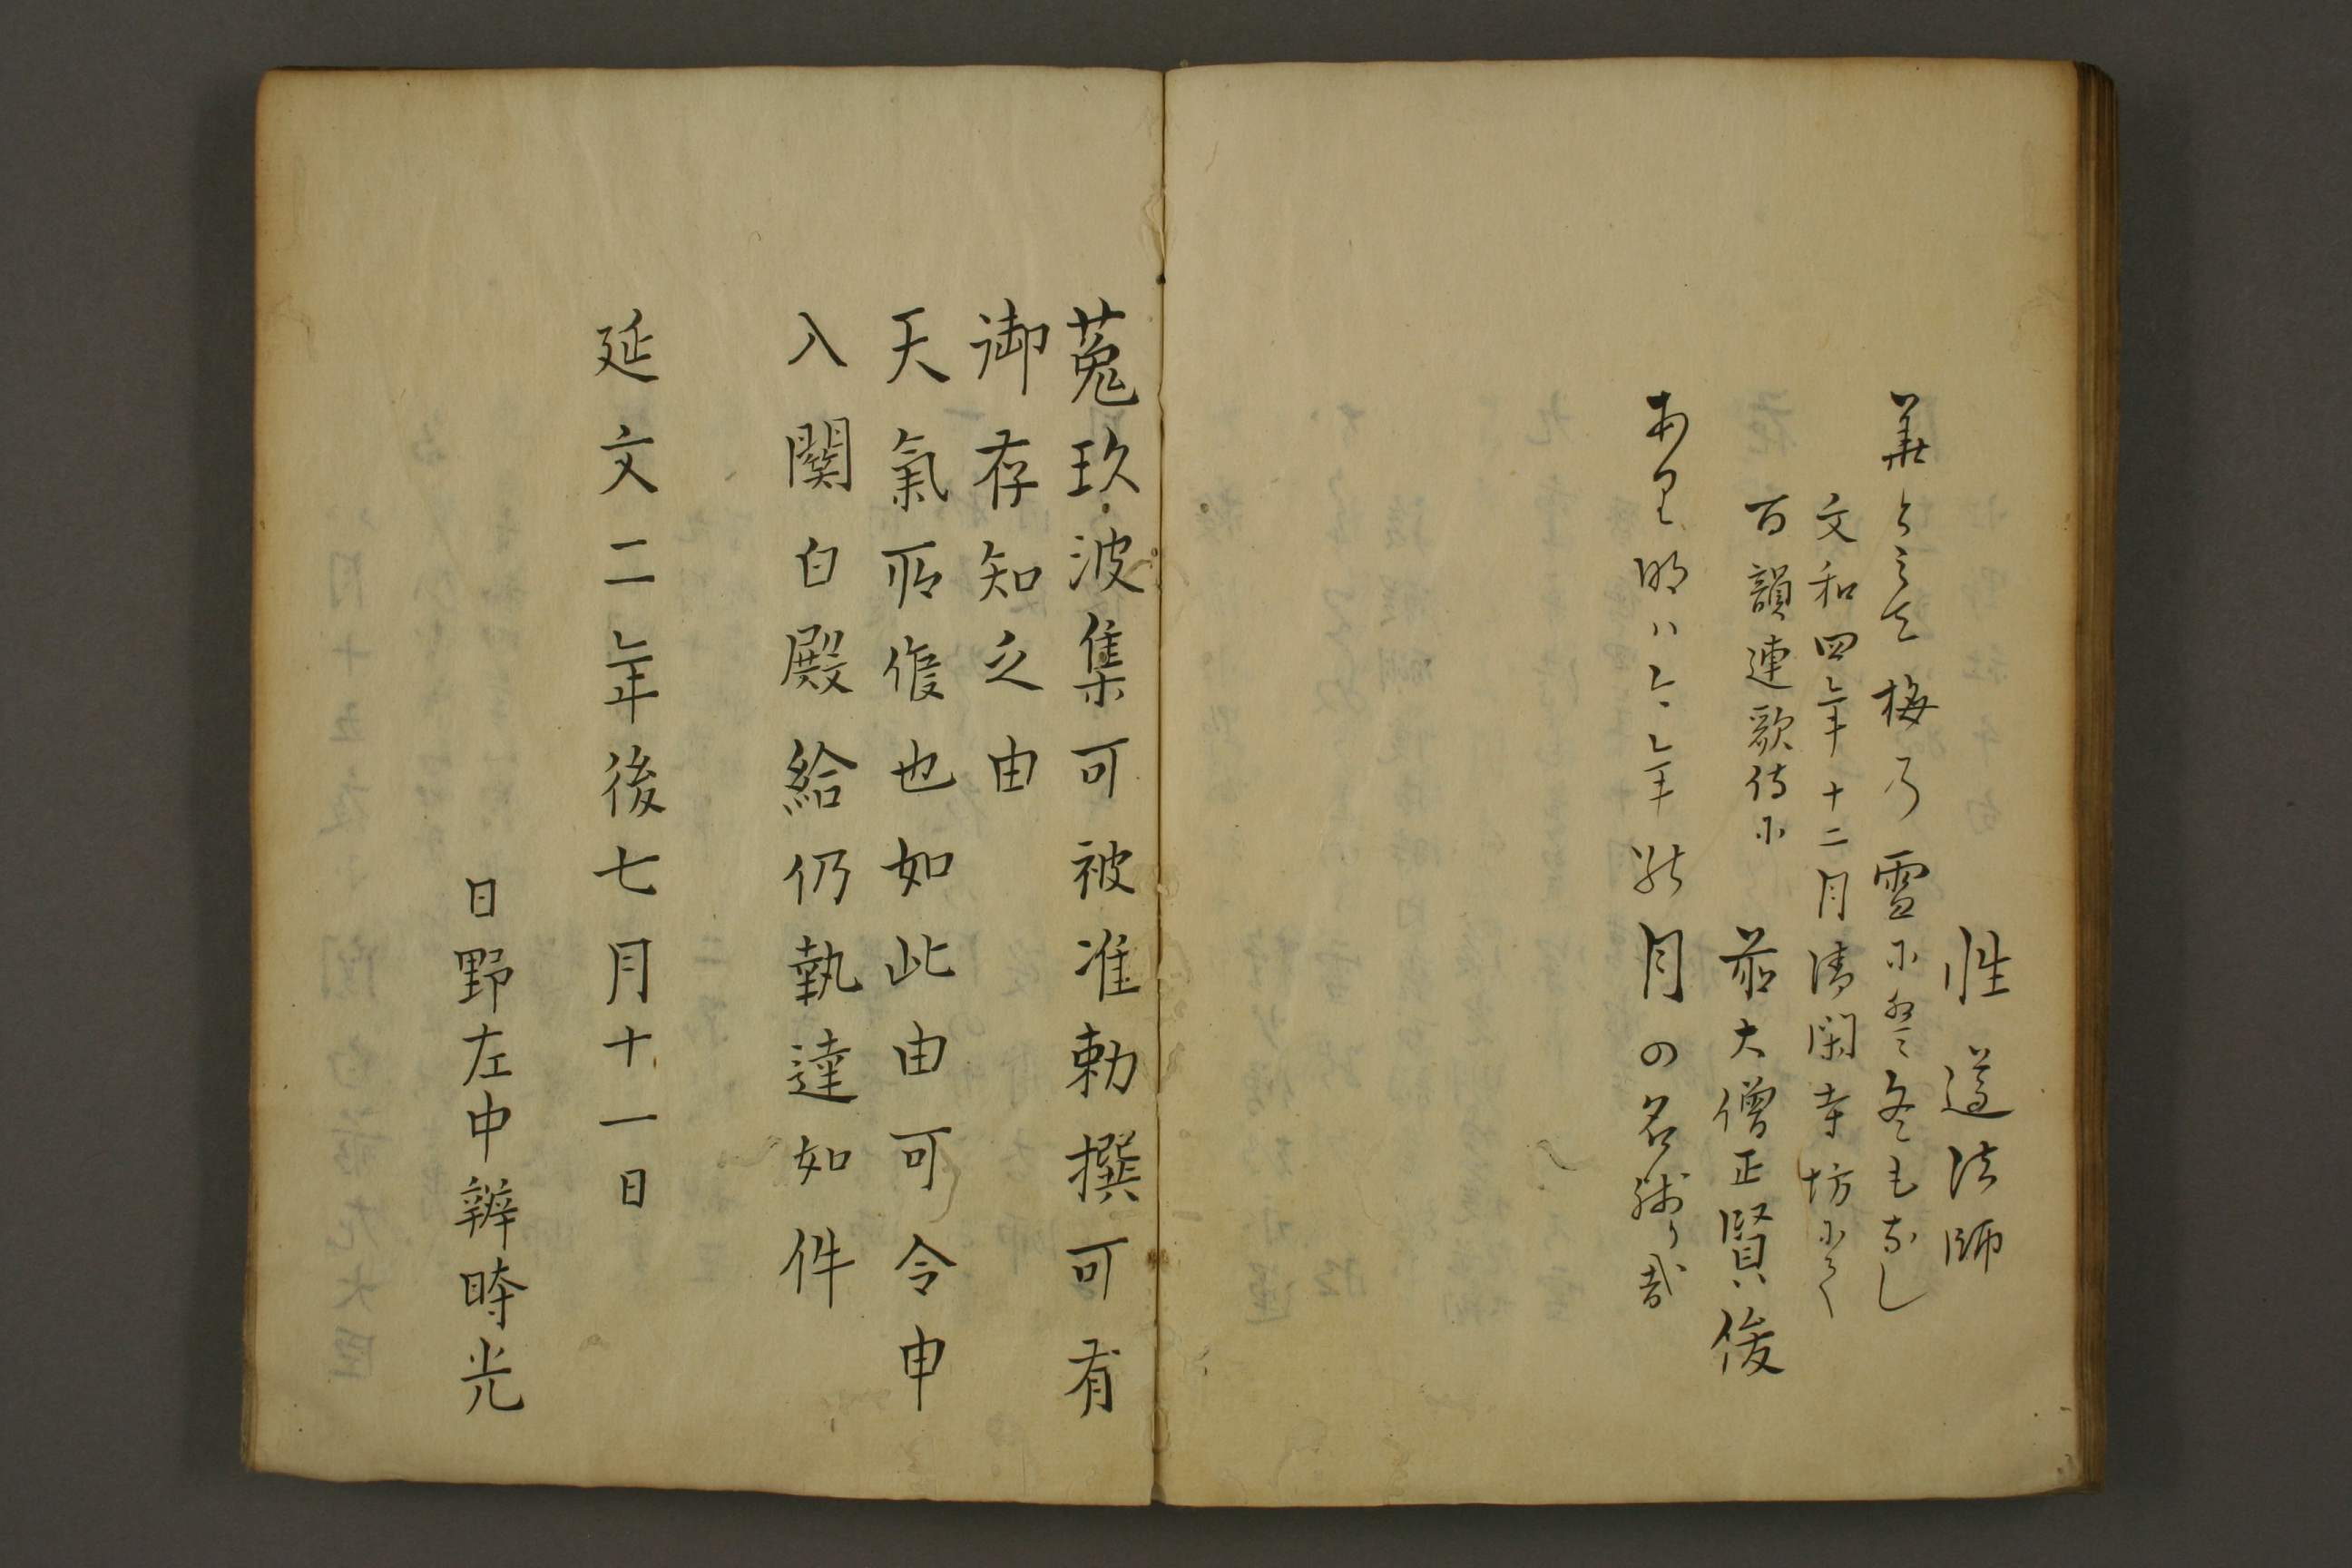 性遵法師
華とみえ梅乃雪に冬もなし
文和四年十二月清閑寺坊にて
百韻連歌侍に
前大僧正賢俊
あり明ハことし年の月の名残か哉
菟玖波集可被准勅撰可有
御存知之由
天氣所候也如此由可令申
入関白殿給仍執達如件
延文二年後七月十一日
日野左中辨時光